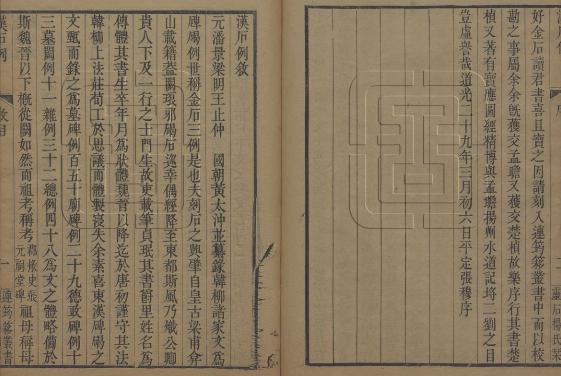 好金石讀君書喜且寶之因請刻入連筠簃叢書中而以校
勘之事屬余余旣獲交孟瞻又獲交楚楨故樂序行其書楚
楨又著有寶應圖經精博與孟瞻揚州水道記埒二劉之目
豈虛譽哉道光二十九年三月初六日平定張穆序
靈石楊氏栞
漢石例
漢石例敘
元潘景梁明王止仲 國朝黃太沖並纂錄韓柳諸家文爲
碑碣例世稱金石三例是也夫刻石之興肇自皇古梁甫弇
山載籍盍闕琅邪碣石巡幸偶經降至東都斯風乃熾公卿
貴人下及一行之士門生故吏載筆貞珉其書爵里姓名爲
傳體其書生卒年月爲狀體魏晉以降迄於唐初謹守其法
韓柳上法莊荀工於思議而體製寖失余素喜東漢碑碣之
文輒而錄之爲墓碑例百五十廟碑例二十九德政碑例十
三墓闕例十一雜例三十二總例四十八爲文之體略備於
斯魏晉以下槪從闕如然而祖考稱考
祖母稱母
漢石例
敘目
一
連筠簃叢書